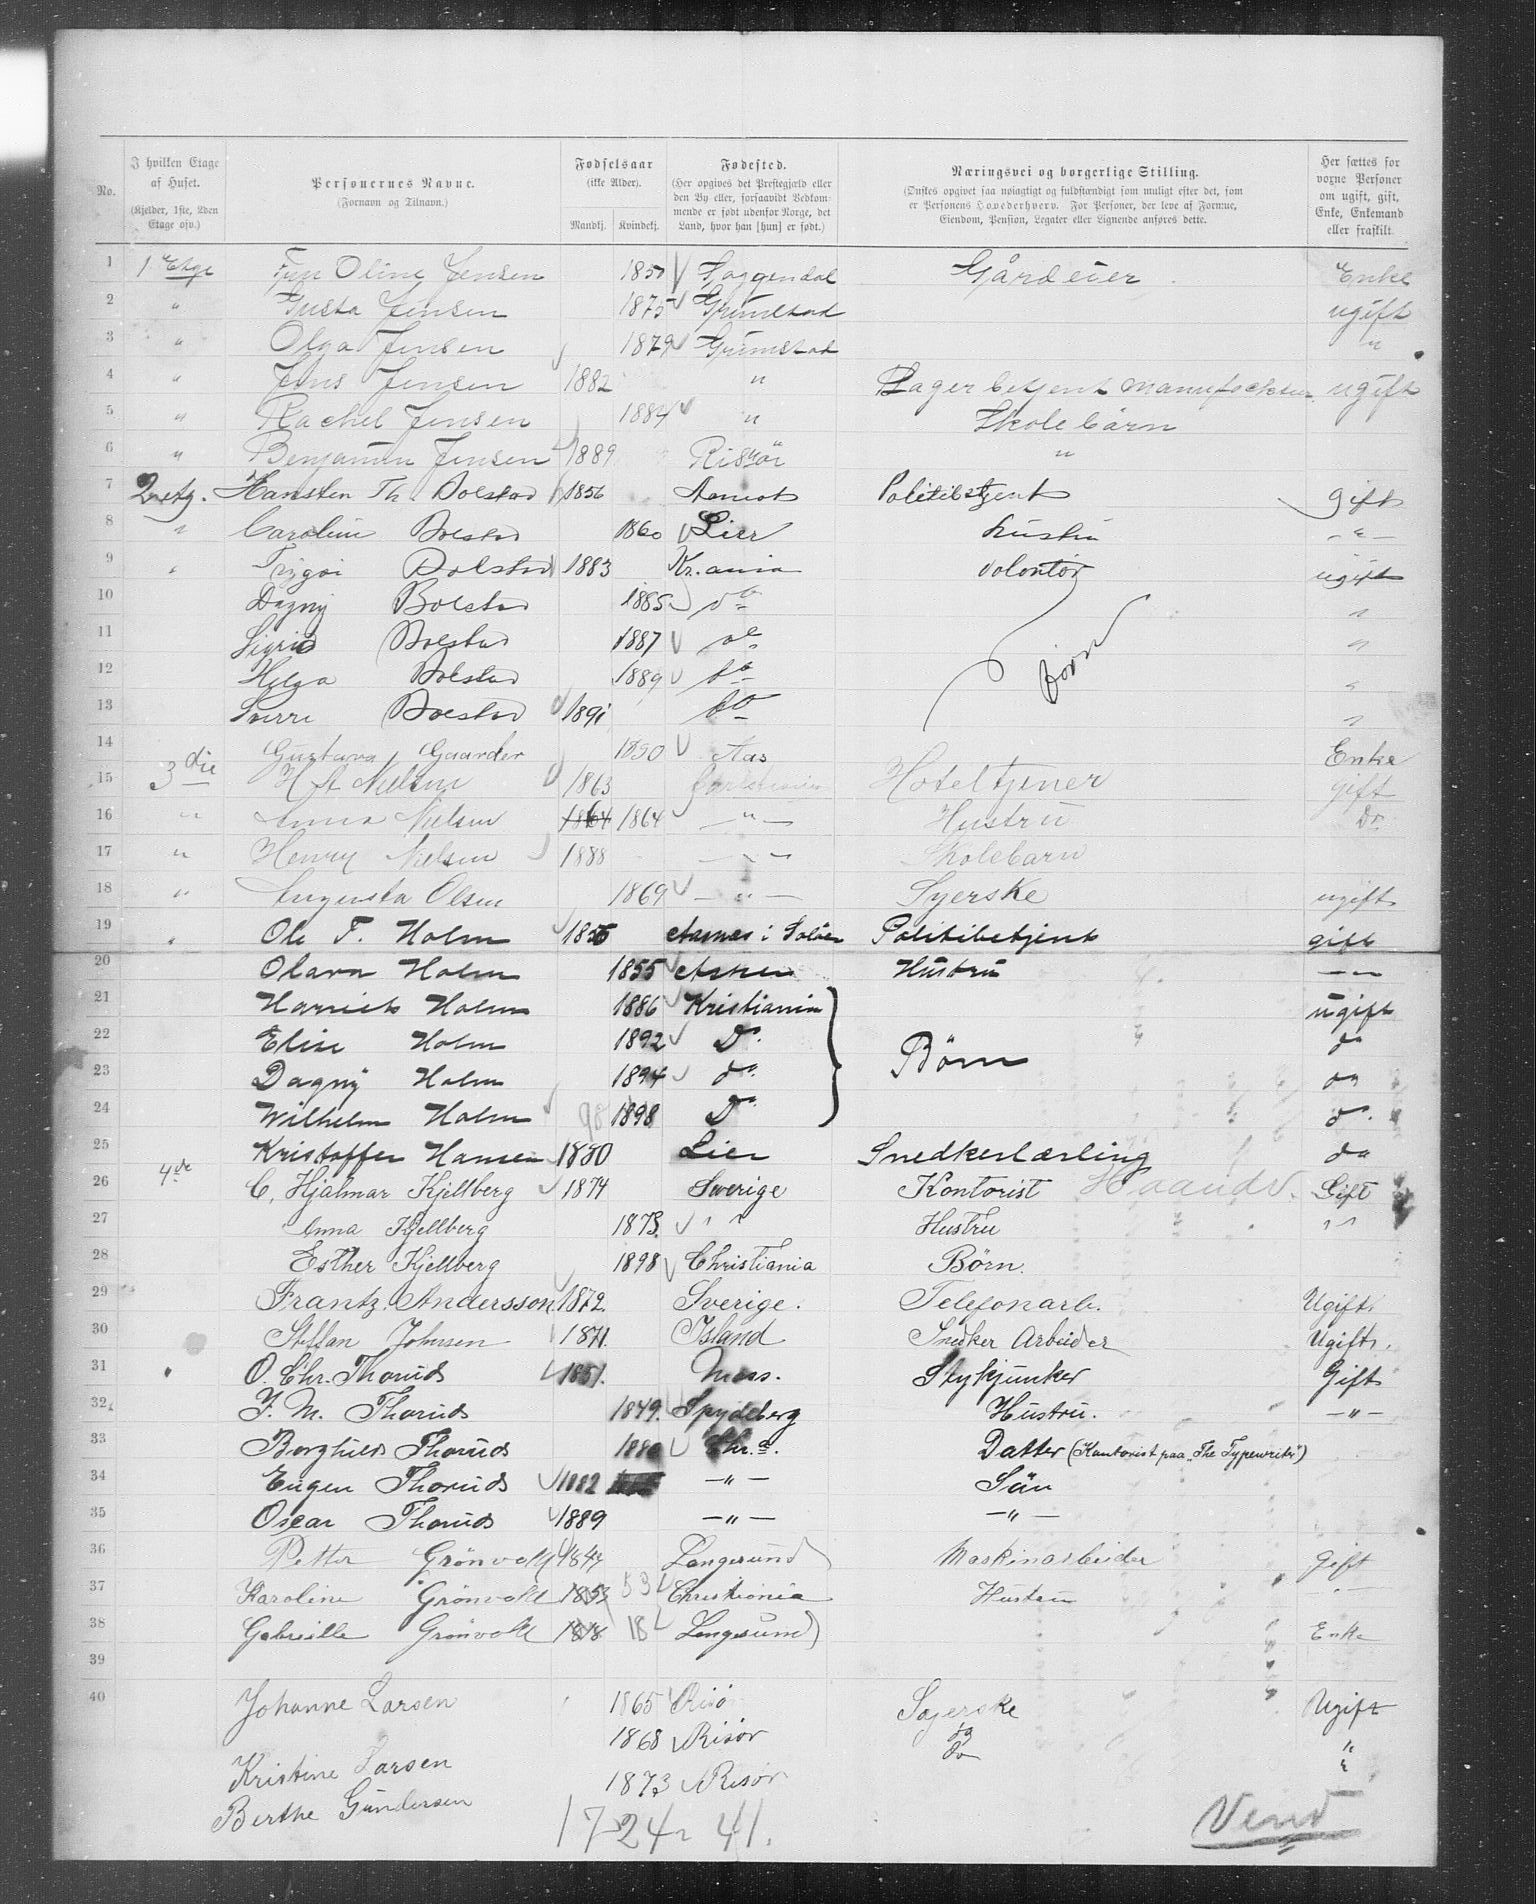 No.
I hvilken Etage af Huset. (Kjelder, 1ste, 2den Etage osv.)
Personernes Navne. (Fornavn og Tilnavn.)
Fødselsaar (ikke Alder). Mandkj. Kvindekj.
Fødested. (Her opgives det Prestegjæld eller den By eller, forsaavidt Vedkommende er født udenfor Norge, det Land, hvor han [hun] er født.)
Næringsvei og borgerlige Stilling. (Ønskes opgivet saa nøiagtigt og fuldstændigt som muligt efter det, som er Personens Hovederhverv. For Personer, der leve af Formue, Eiendom, Pension, Legater eller Lignende anføres dette.)
Her sættes for vorne Personer om ugift, gift, Enke, Enkemand eller fraskilt.
1 1 Etge Oline Jensen 1851 Soggendal Gårdeier Enke
2 " Gusta Jensen 1875 Grimstad ugift
3 " Olga Jensen 1879 Grimstad "
4 " Jens Jensen 1882 " Lagerbetjent manufaktur ugift
5 " Rachel Jensen 1884 " Skolebarn
6 " Benjamin Jensen 1889 Risør "
7 2 etg. Hansten Th. Bolstad 1856 Aamot Politibetjent gift
8 " Caroline Bolstad 1860 Lier hustru - " -
9 " Trygve Bolstad 1883 Kr.ania volontør ugift
10 Dagny Bolstad 1885 do "
11 Sigrid Bolstad 1887 do "
12 Helga Bolstad 1889 do Børn "
13 Sverre Bolstad 1891 do "
14 Gustava Gaarder 1850 Aas Enke
15 3die H A Nielsen 1863 Christiania Hoteltjener gift
16 " Anna Nielsen 1864 1864 - " - Hustru Do
17 " Henry Nielsen 1888 - " - Skolebarn
18 " Augusta Olsen 1869 - " - Syerske ugift
19 " Ole T. Holm 1855 Aasnes i Soløer Politibetjent gift
20 Olava Holm 1855 Asker Hustru - " -
21 Harriet Holm 1886 Kristiania ugift
22 Elise Holm 1892 Do Børn do
23 Dagny Holm 1894 do do
24 Wilhelm Holm 98 1898 Do do
25 Kristoffer Hansen 1880 Lier Snedkerlærling do
26 4de C. Hjalmar Kjellberg 1874 Sverige Kontorist Haandv. Gift
27 Anna Kjellberg 1873 " " Hustru " "
28 Esther Kjellberg 1898 Christiania Børn.
29 Frantz Andersson 1872. Sverige. Telefonarb. Ugift
30 Steffan Johnsen 1871. Island Snedker Arbeider Ugift.
31 O. Chr. Thorud 1851. Moss. Stykjunker Gift
32 J. M. Thorud 1849. Spydeberg Hustru. - " -
33 Borghild Thorud 1880 Chr.a. Datter (Kontorist paa "The Typewriter")
34 Eugen Thorud 1882 - " - Søn
35 Oscar Thorud 1889 - " - - " -
36 Petter Grönvold 1847 Langesund Maskinarbeider gift
37 Karoline Grönvold 1853 53 Christiania Hustru " -
38 Gabrielle Grönvold 1818 18 Langesund Enke
39
40 Johanne Larsen 1865 Risø Syerske Ugift
Kristine Larsen 1868 Risør do "
Berthe Gundersen 1873 Risør do "
17 - 24 = 41.
Vend